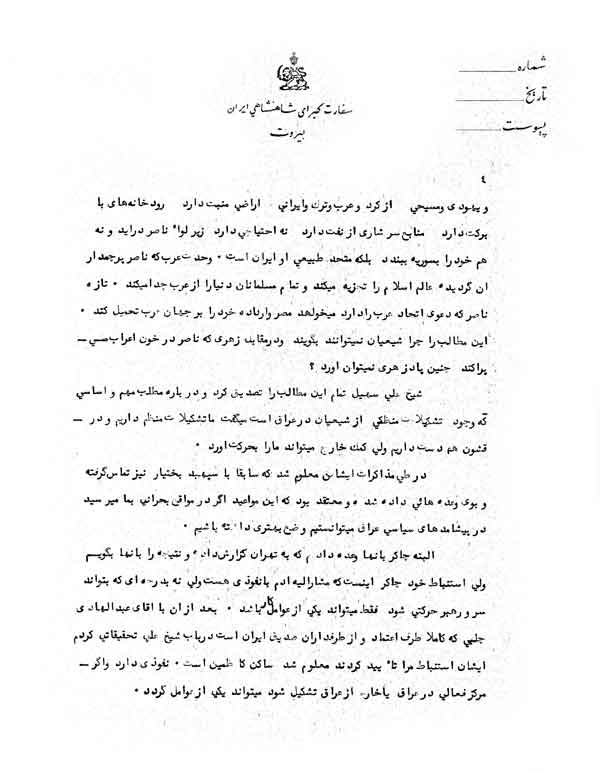 شماره
تاریخ
پیوست
سفارت کبرای شاهنشاهی ایران
بیروت
٤
و یهودی ومسیحی از کرد و عرب وترک وایرانی ٠ اراضی منبت دارد رودخانه های با
برکت دارد منابع سرشاری از نفت دارد نه احتیاجی دارد زیر لواء ناصر دراید و نه
هم خود را بسوریه ببندد بلکه متحد طبیعی او ایران است ٠ وحدت عرب که ناصر پرچمدار
ان گردیده عالم اسلام را تجزیه میکند و تمام مسلمانان دنیا را از عرب جدا میکند ٠ تازه
ناصر که دعوی اتحاد عرب را دارد میخواهد مصر واراده خود را بر جهان عرب تحمیل کند ٠
این مطالب را چرا شیعیان نمیتوانند بگویند ودرمقابل زهری که ناصر در خون اعراب می ـ
پراکند چنین پادزهری نمیتوان اورد ؟
شیخ علی سهیل تمام این مطالب را تصدیق کرد و در باره مطلب مهم و اساسی
که وجود تشکیلات متکی از شیعیان در عراق است میگفت ما تشکیلات منظم داریم و در ـ
قشون هم دست داریم ولی کمک خارج میتواند ما را بحرکت اورد ٠
در طی مذاکرات ایشان معلوم شد که سابقا با سپهبد بختیار نیز تماس گرفته
و بوی وعده هائی داده شده و معتقد بود که این مواعید اگر در مواقع بحرانی بما میرسید
در پیشامدهای سیاسی عراق میتوانستیم وضع بهتری داشته باشیم ٠
البته چاکر بانها وعده دادم که به تهران گزارش داده و نتیجه را بانها بگویم
ولی استنباط خود چاکر اینست که مشارالیه ادم بانفوذی هست ولی نه بدرجه ای که بتواند
سر و رهبر حرکتی شود فقط میتواند یکی از عوامل کار باشد ٠ بعد از ان با اقای عبدالهادی
چلبی که کاملا طرف اعتماد و از طرفداران صدیق ایران است درباب شیخ علی تحقیقاتی کردم
ایشان استنباط مرا تاء یید کردند معلوم شد ساکن کاظمین است ٠ نفوذی دارد واگر ـ
مرکز فعالی در عراق یا خارج از عراق تشکیل شود میتواند یکی از عوامل گردد ٠